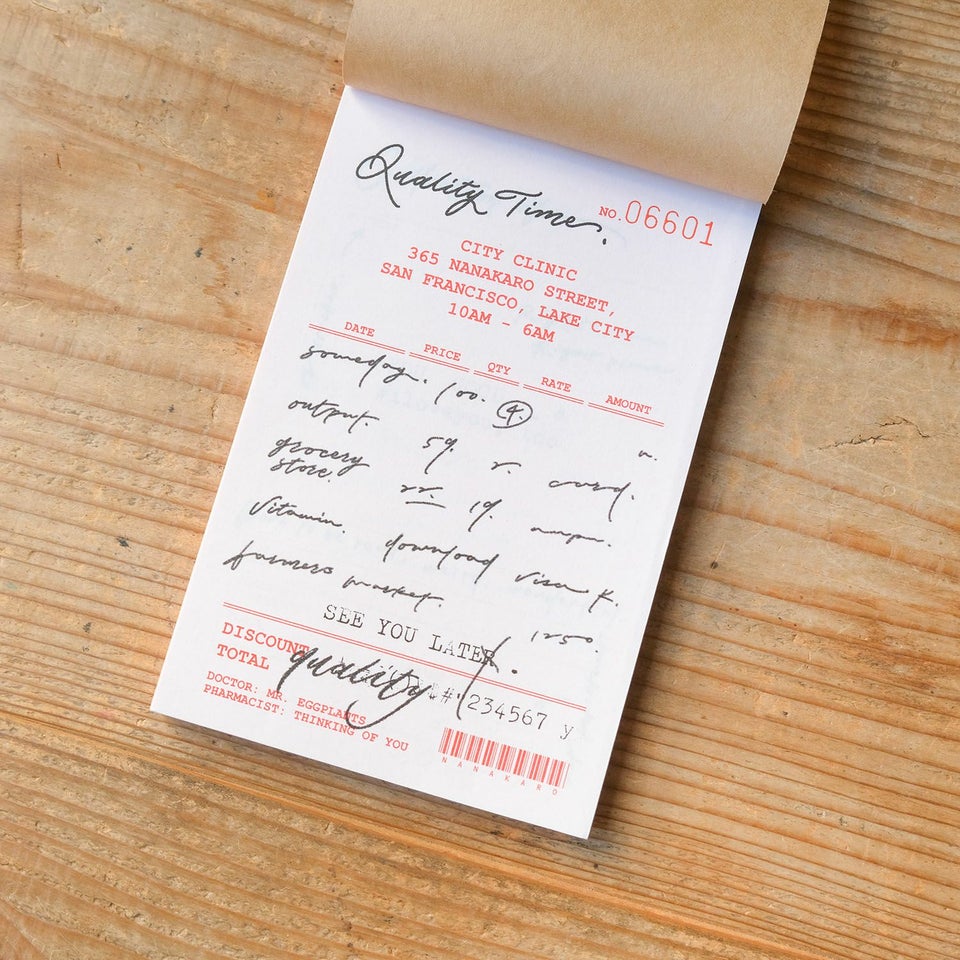 Quality Time.
NO. 06601
CITY CLINIC
365 NANAKARO STREET,
SAN FRANCISCO, LAKE CITY
10AM - 6AM
DATE PRICE QTY RATE AMOUNT
someday. 100. 4.
output. 59. r. card. n.
grocery
store. 22. 19.
Vitamin. download Visa K.
farmers market. 1250.
SEE YOU LATER
DISCOUNT
TOTAL quality #1234567 y
DOCTOR: MR. EGGPLANTS
PHARMACIST: THINKING OF YOU
NANAKARO